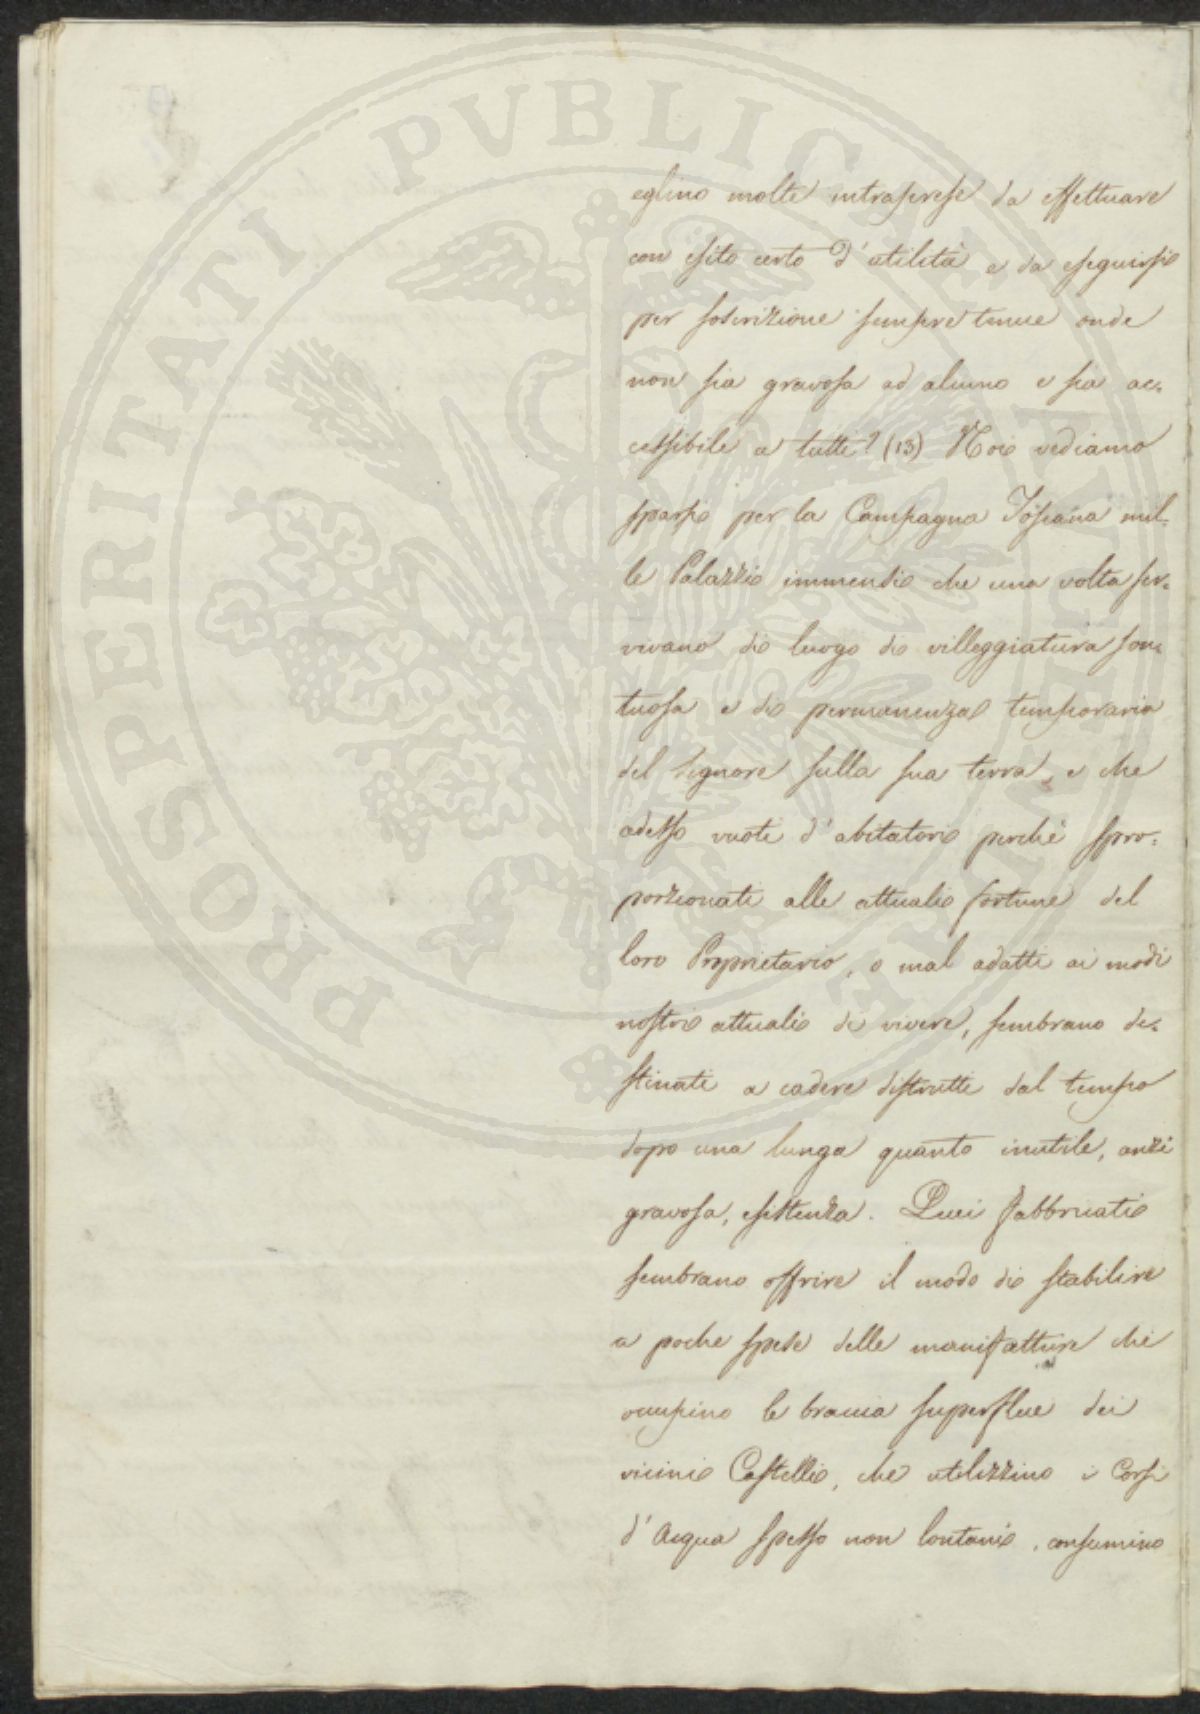 PROSPERITATI PUBLICAE AUGENDAE
eglino molte intraprese da effettuare
con esito certo d'utilità e da eseguirsi
per soscrizione sempre tenue onde
non sia gravosa ad alcuno e sia ac-
cessibile a tutti? (13) Noi vediamo
sparsi per la Campagna Toscana mil-
le Palazzi immensi che una volta ser-
vivano di luogo di villeggiatura son-
tuosa e di permanenza temporaria
del Signore sulla sua terra, e che
adesso vuoti d'abitatori perchè spro-
porzionati alle attuali fortune del
loro Proprietario, o mal adatti ai modi
nostri attuali di vivere, sembrano de-
stinati a cadere distrutti dal tempo
dopo una lunga quanto inutile, anzi
gravosa, esistenza. Quei fabbricati
sembrano offrire il modo di stabilire
a poche spese delle manifatture che
occupino le braccia superflue dei
vicini Castelli, che utilizzino i Corsi
d'Acqua spesso non lontani, consumino